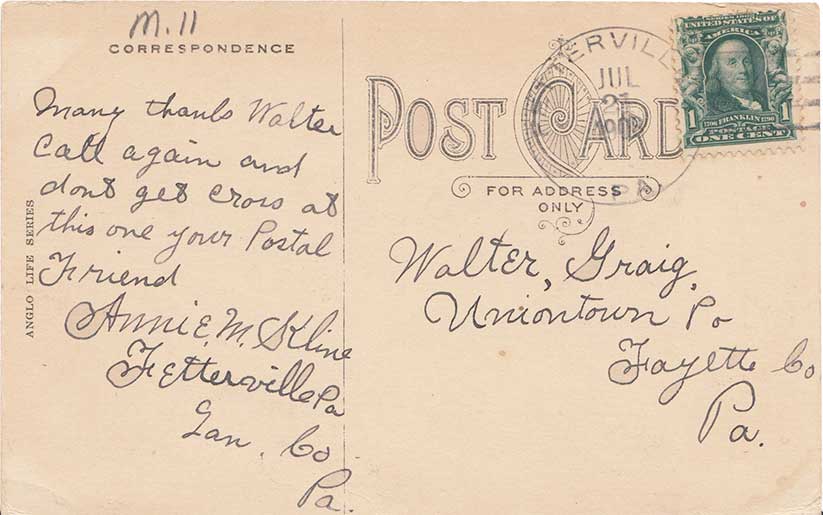 M. 11
CORRESPONDENCE
Many thanks Walter
Call again and
dont get cross at
this one your Postal
Friend
Annie. M. Kline
Fetterville Pa
Lan. Co
Pa.
ANGLO LIFE SERIES
POST CARD
FOR ADDRESS
ONLY
JUL
21
PA
SERIES 1902
UNITED STATES OF
AMERICA
1706 FRANKLIN 1790
POSTAGE
1 ONE CENT 1
Walter, Graig,
Uniontown Po
Fayette Co
Pa.